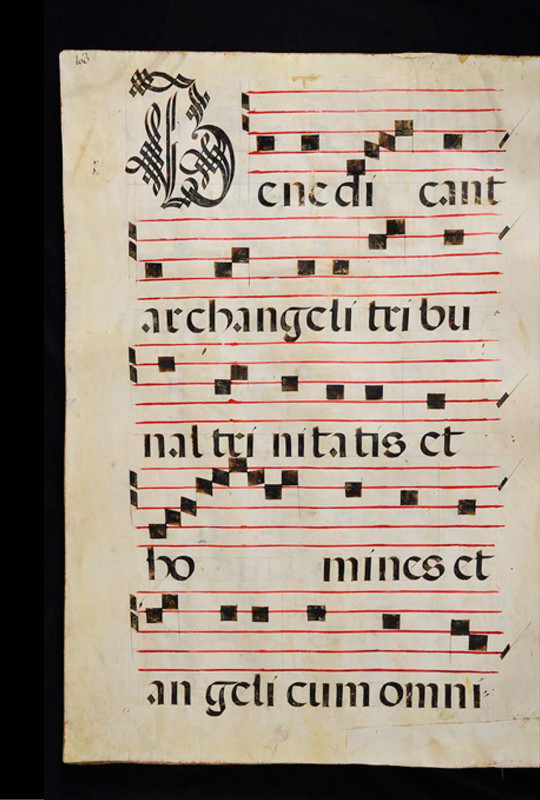 163
Benedi cant
archangeli tribu
nal tri nitatis et
ho mines et
an geli cum omni